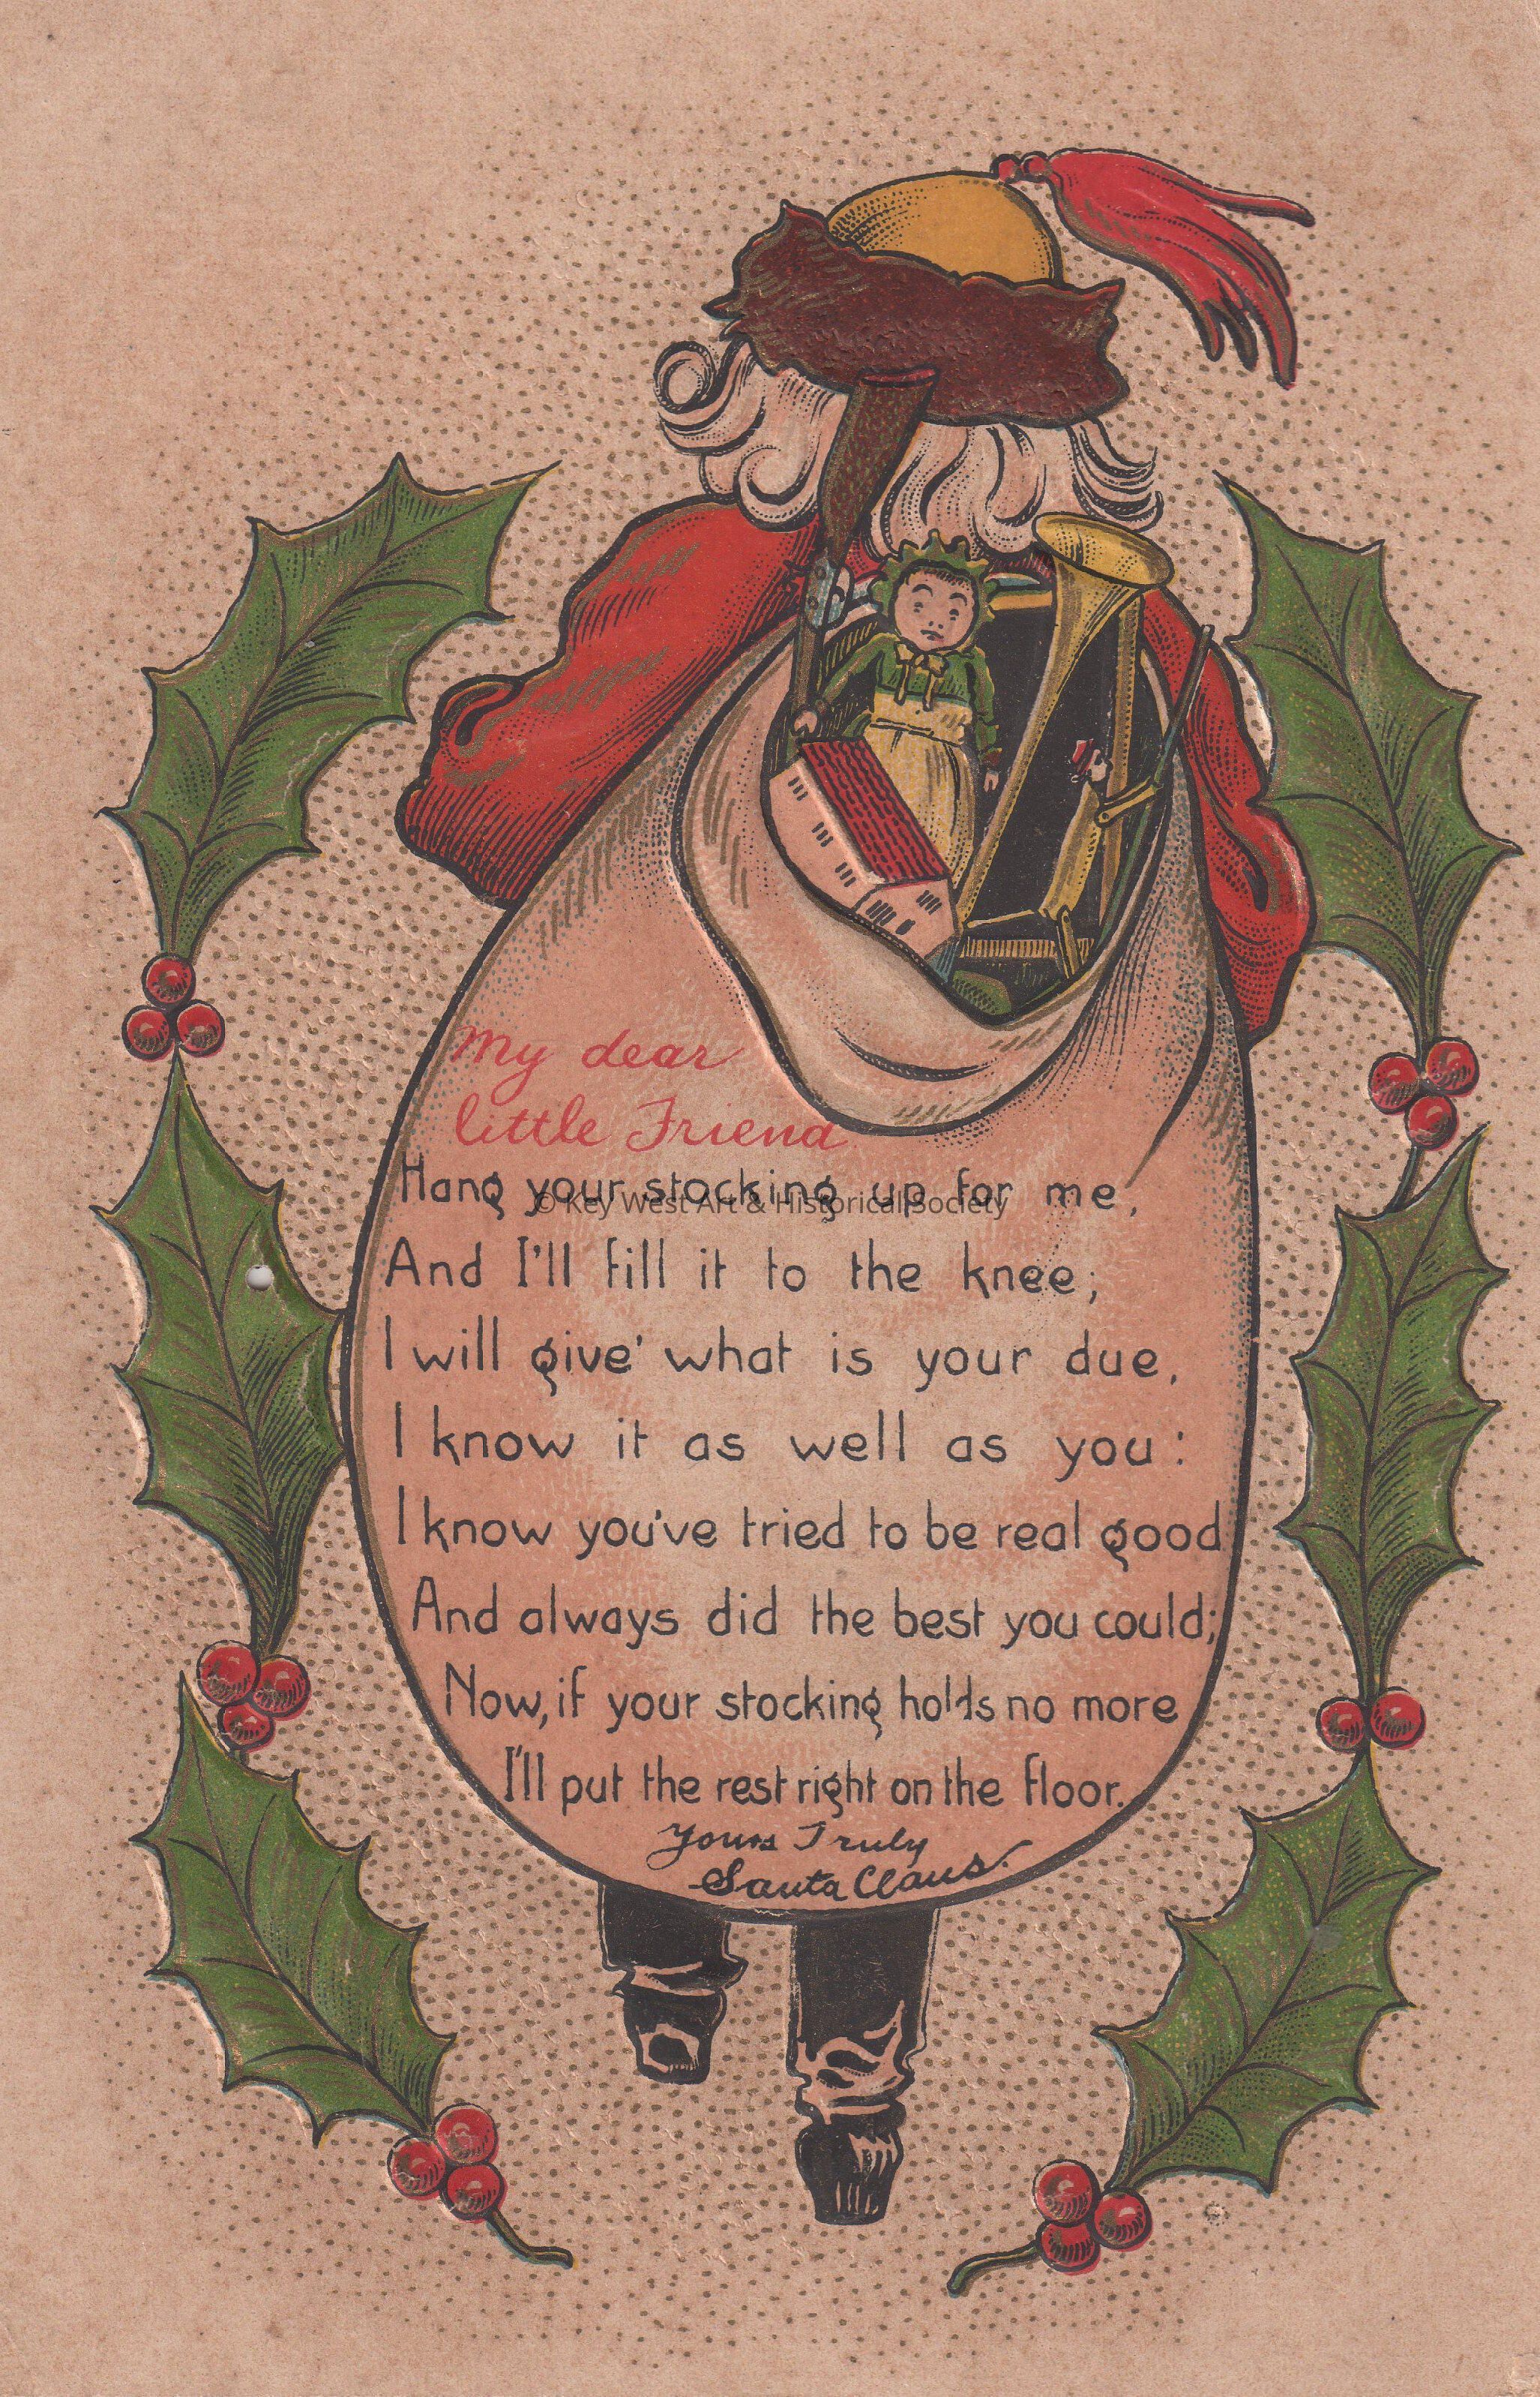 My dear
little Friend
Hang your stocking up for me,
© Key West Art & Historical Society
And I'll fill it to the knee;
I will give' what is your due,
I know it as well as you:
I know you've tried to be real good
And always did the best you could;
Now, if your stocking holds no more
I'll put the rest right on the floor.
Yours Truly
Santa Claus.